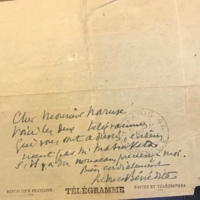 Cher Monsieur Naruse
Voici les deux télégrammes
que vous ont adressés
par M. Matsukata
S'il y a du nouveau prévenez moi.
Bien cordialement
Léonce Bénédite
RÉPUBLIQUE FRANÇAISE.
TÉLÉGRAMME
POSTES ET TÉLÉGRAPHES